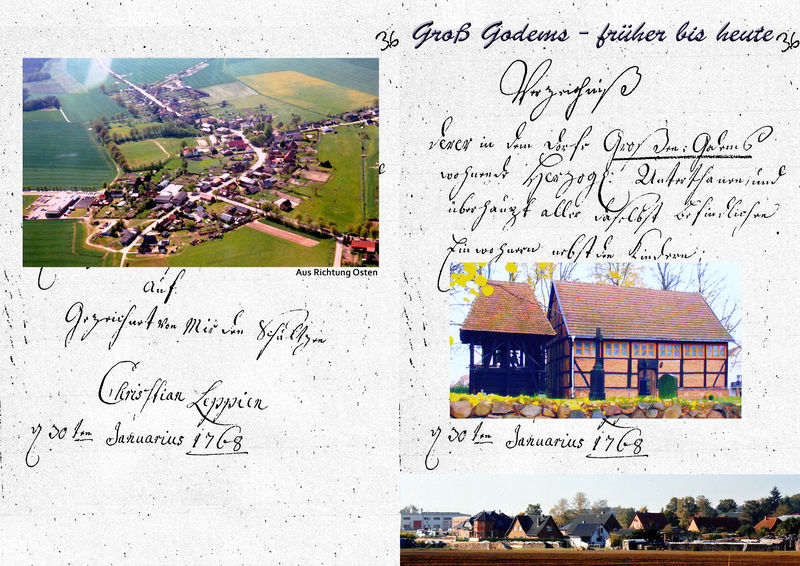 36
Aus Richtung Osten
Auf
Gezeichnet von Mir den Schultzen
Christian Leppien
d 30ten Januarius 1768
Groß Godems - früher bis heute
36
Verzeichniß
derer in dem Dorfe Großen-Godems
wohnende Herzogl: Unterthanen, und
überhaupt aller daselbst befindlichen
Einwohnern nebst den Kindern,
d 30ten Januarius 1768